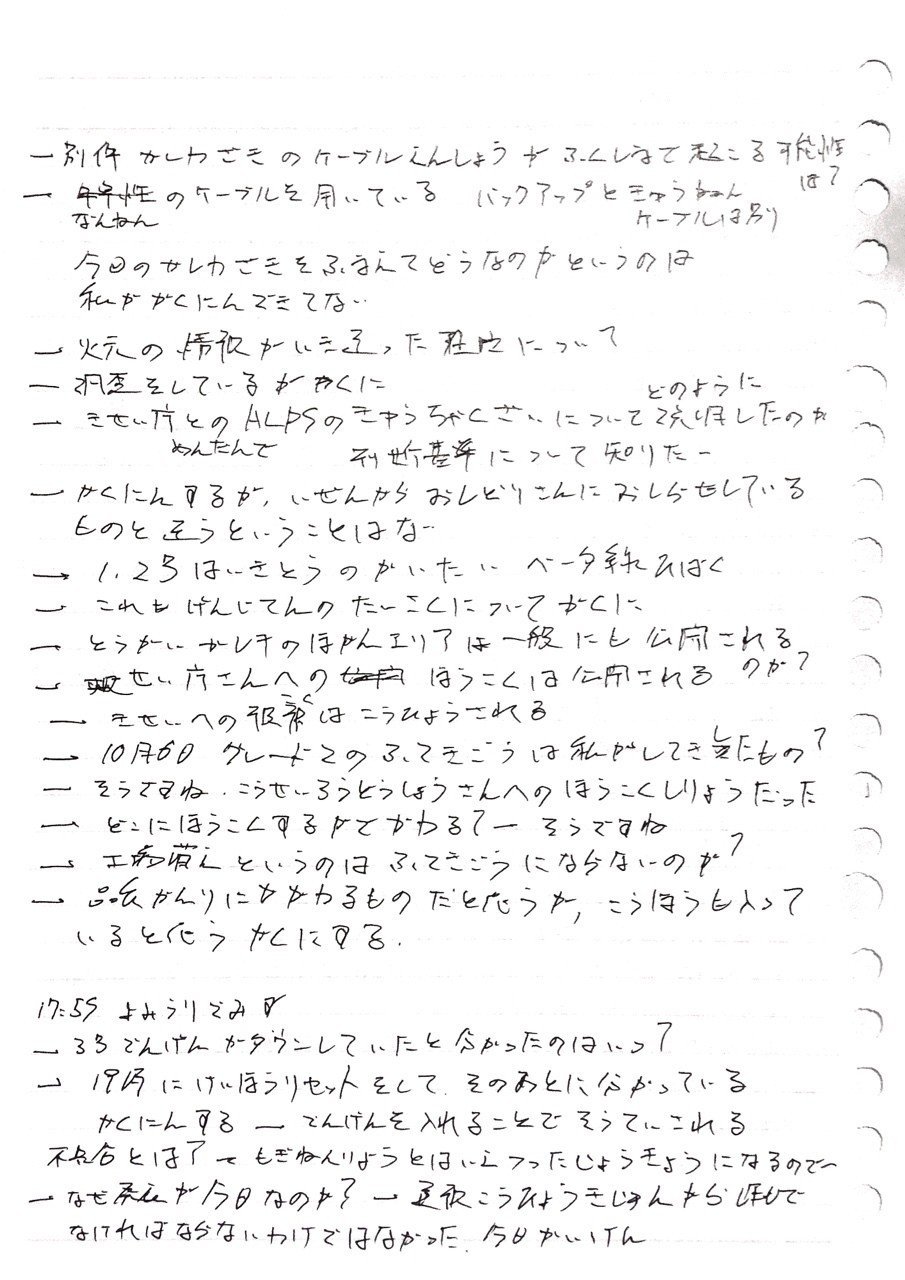 ー 別件 かしわざきのケーブルえんしょうが ふくしまで起こる可能性は?
ー 性のケーブルを用いている バックアップときゅうねん
なんねん ケーブルは別
今回のかしわざきをふまえてどうなのかというのは
私がかくにんできてない
ー 火元の情報がいき違った 理由について?
ー 調査をしているが かくに
ー きせい庁とのALPSのきゅうちゃくざいについて どのように 説明したのか
めんたんで 判断基準について知りたー
ー かくにんするが、いぜんから おしどりさんに おしらせしている
ものと違うということはな
ー 1.2号はいきとうのかいたい ベータ線ひばく
ー これも げんじてんの たいこくについて かくに
ー とうがい ガレキのほかんエリアは一般にも公開される
のか?
ー せい庁さんへの ほうこくは公開される
ー きせいへの報告はこうひょうされる
ー 10月6日 グレード2の ふてきごうは私がしてきしたもの?
ー そうですね.こうせいろうどうしょうさんへのほうこくしりょうだった
ー どこにほうこくするかでかわる?ー そうですね
ー というのは ふてきごうにならないのか?
ー 品んかんりにかかわるものだと思うが,こうほうも入って
いると思う かくにする.
17:59 よみうりでみず
ー 3号 でんげんがダウンしていたと分かったのはいつ?
ー 19時にけいほうリセットをして.そのあとに分かっている
かくにんする ー でんげんを入れることで そうていされる
不具合とは?ー もぎねんりょうとはいえ つったじょうきょうになるのでー
ー なぜ が今日なのか?ー 通報こうひょうきじゅんから
なければならないわけではなかった.今日かいけん